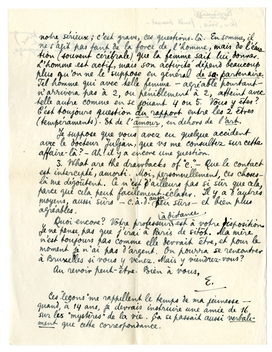 notre sérieux ; c'est grave, ces questions-là. En somme, il
ne s'agit pas tant de la force de l'Homme, mais de l'émo-
tion (souvent cérébrale) que la femme sait lui donner.
L'homme est actif, mais son activité dépend beaucoup
plus qu'on ne le suppose en général de sa partenaire.
Tel homme qui avec telle femme - agréable pourtant -
n'arrivera pas à 2, ou péniblement à 2, atteint avec
telle autre comme en se jouant 4 ou 5. Vous y êtes ?
C'est toujours question du rapport entre les 2 êtres
(tempéraments). Et de l'amour, en dehors de l'art.
Je suppose que vous avez eu quelque accident
avec le docteur, puisque vous me consultez sur cette
affaire-là ? - Ai-je eu encore une question.
3. What are the drawbacks of "c." - Que le contact
est intercepté, amorti. Moi, personnellement, ces choses-
là me dégoûtent. Il n'est d'ailleurs pas si sûr que cela,
parce que cela peut facilement éclater. Il y a d'autres
moyens, aussi sûrs - c. à d. peu sûrs - et bien plus
agréables.
à distance
Quoi encore ? Votre professeur est à votre disposition.
Je ne pense pas que j'irai à Paris de sitôt. Ma mère
n'est toujours pas comme elle devrait être, et pour le
moment je n'ai pas d'argent. On pourra se rencontrer
à Bruxelles si vous voulez. Mais y viendrez-vous ?
Au revoir peut-être. Bien à vous,
E.
Ces leçons me rappellent le temps de ma jeunesse -
quand, à 14 ans, je devais instruire une amie de 16
sur les "mystères" de la vie. Ça se passait aussi verbale-
ment que cette correspondance.